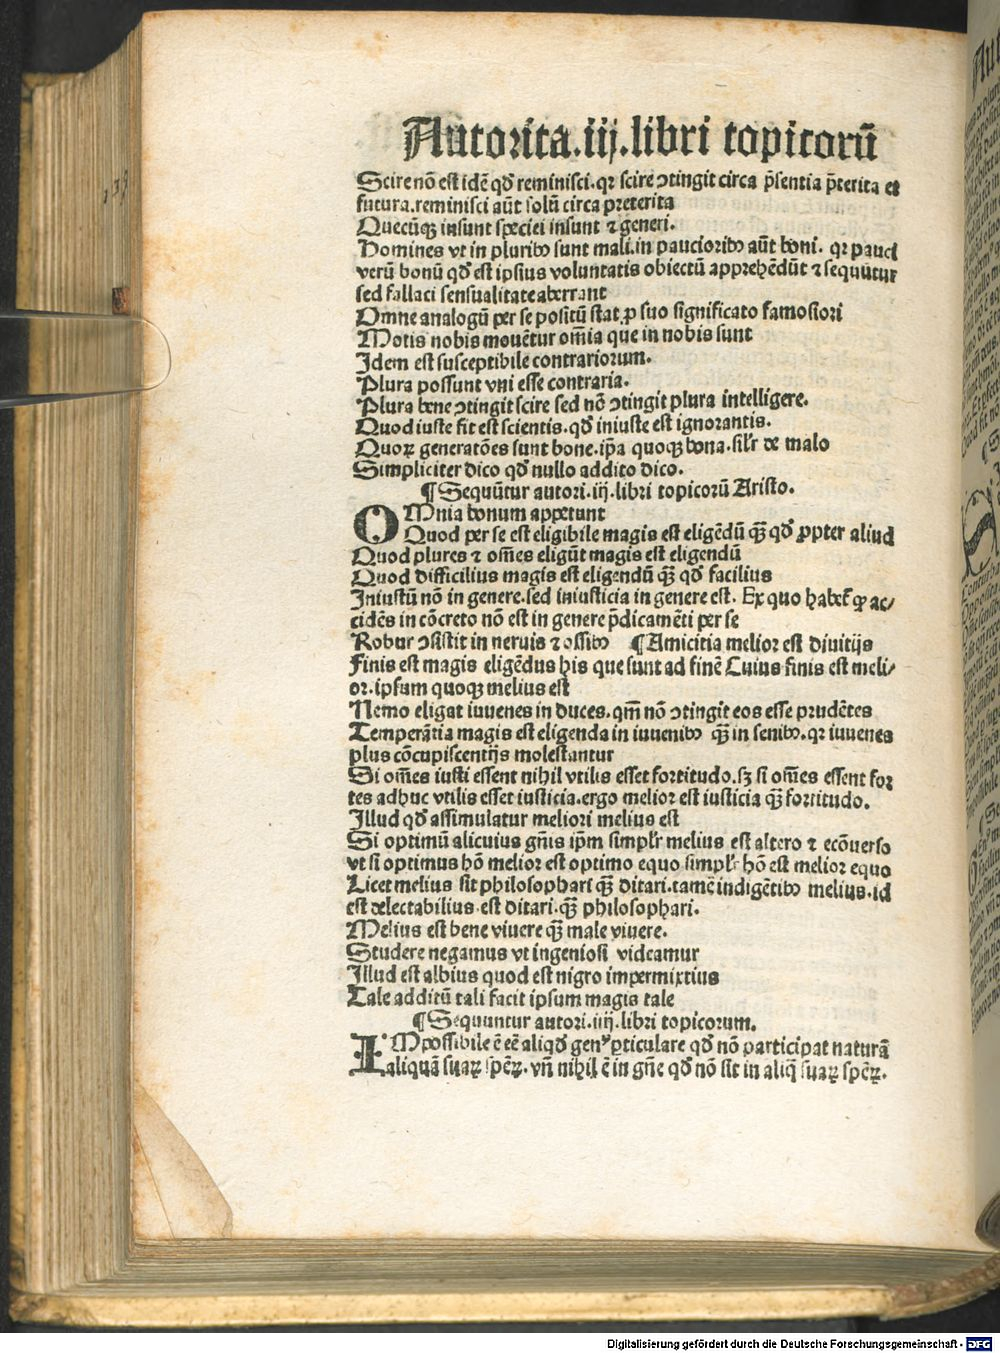 Autorita.iij.libri topicorū
Scire nō est idē qđ reminisci.qꝛ scire ↄtingit circa p̄sentia p̄terita et
futura.reminisci aūt solū circa preterita
Quecūqꝫ insunt speciei insunt ⁊ generi.
Homines vt in pluribꝰ sunt mali.in paucioribꝰ aūt boni. qꝛ pauci
verū bonū qđ est ipsius voluntatis obiectū apprehēdūt ⁊ sequūtur
sed fallaci sensualitate aberrant
Omne analogū per se positū stat ꝓ suo significato famosiori
Motis nobis mouētur om̄ia que in nobis sunt
Idem est susceptibile contrariorum.
Plura possunt vni esse contraria.
Plura bene ↄtingit scire sed nō ↄtingit plura intelligere.
Quod iuste fit est scientis.qđ iniuste est ignorantis.
Quoꝝ generatōes sunt bone.ip̄a quoqꝫ bona.sil̄r de malo
Simpliciter dico qđ nullo addito dico.
¶Sequūtur autori.iij.libri topicorū Aristo.
OMnia bonum appetunt
Quod per se est eligibile magis est eligēdū qꝫ̄ qđ ꝓpter aliud
Quod plures ⁊ om̄es eligūt magis est eligendū
Quod difficilius magis est eligendū qꝫ̄ qđ facilius
Iniustū nō in genere.sed iniusticia in genere est. Ex quo habet̄ ꝙ ac/
cidēs in cōcreto nō est in genere p̄dicamēti per se
Robur ↄsistit in neruis ⁊ ossibꝰ ¶Amicitia melior est diuitijs
Finis est magis eligēdus his que sunt ad finē Cuius finis est meli/
or.ipsum quoqꝫ melius est
Nemo eligat iuuenes in duces.qm̄ nō ↄtingit eos esse prudētes
Temperātia magis est eligenda in iuuenibꝰ qꝫ̄ in senibꝰ.qꝛ iuuenes
plus cōcupiscentijs molestantur
Si om̄es iusti essent nihil vtilis esset fortitudo.sꝫ si om̄es essent for
tes adhuc vtilis esset iusticia.ergo melior est iusticia qꝫ̄ fortitudo.
Illud qđ assimulatur meliori melius est
Si optimū alicuius gn̄is ip̄m simpl̄r melius est altero ⁊ ecōuerso
vt si optimus hō melior est optimo equo simpl̄r hō est melior equo
Licet melius sit philosophari qꝫ̄ ditari.tamē indigētibꝰ melius.id
est delectabilius est ditari.qꝫ̄ philosophari.
Melius est bene viuere qꝫ̄ male viuere.
Studere negamus vt ingeniosi videamur
Illud est albius quod est nigro impermixtius
Tale additū tali facit ipsum magis tale
¶Sequuntur autori.iiij.libri topicorum.
IMpossibile ē eē aliqđ genꝰ ꝑticulare qđ nō participat naturā
aliquā suaꝝ spēꝝ. vn̄ nihil ē in gn̄e qđ nō sit in aliq̄ suaꝝ spēꝝ.
139
Digitalisierung gefördert durch die Deutsche Forschungsgemeinschaft - DFG